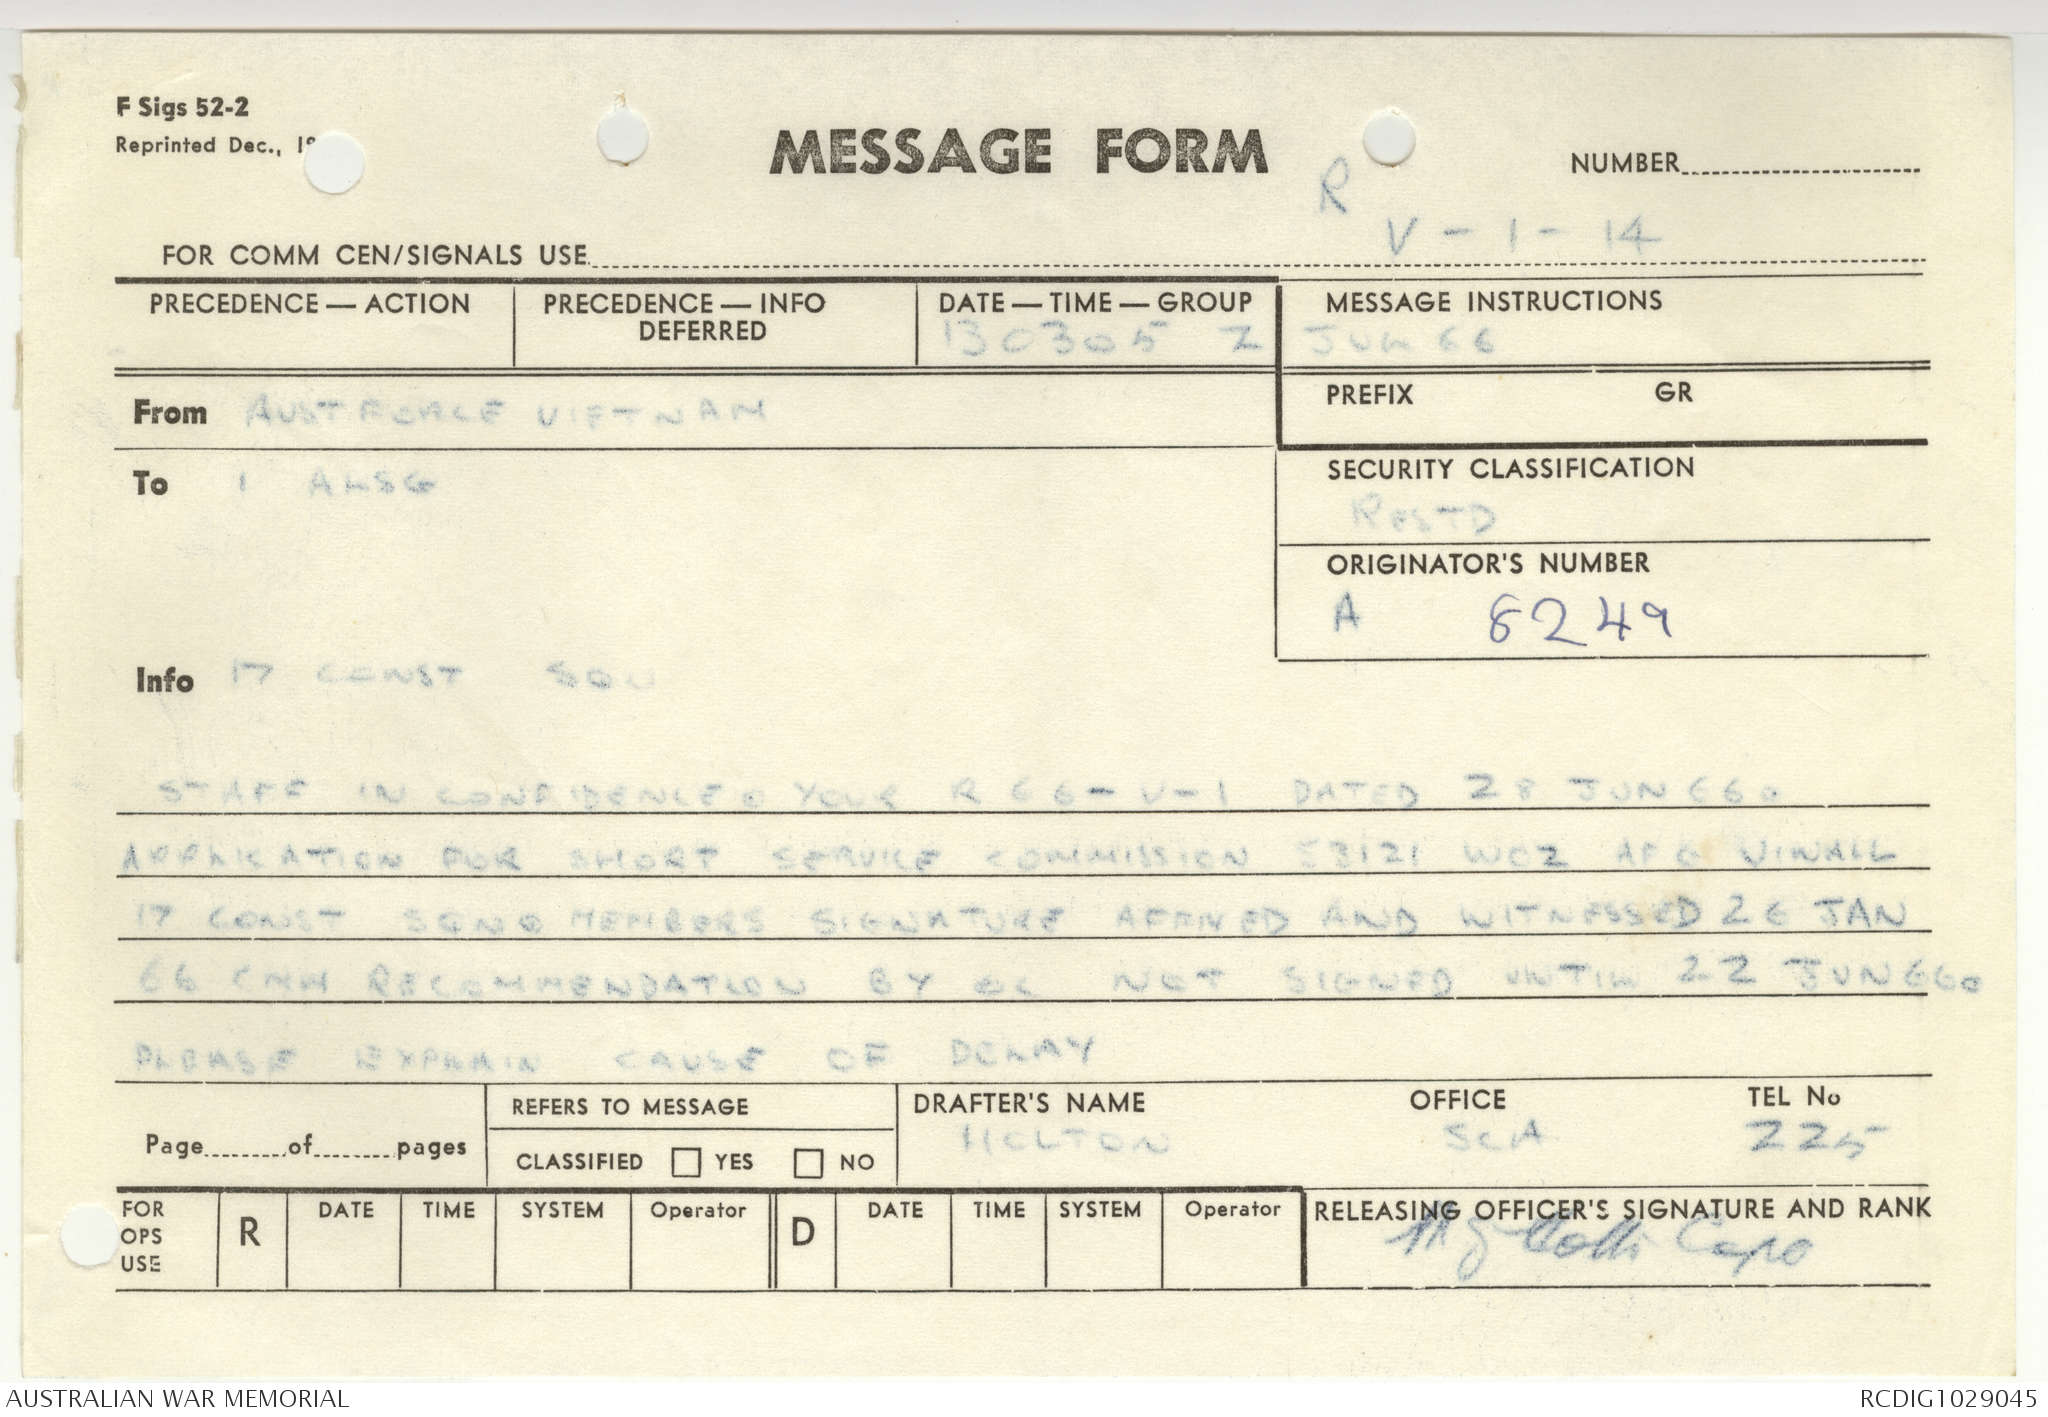 F Sigs 52-2
Reprinted Dec., 19
MESSAGE FORM
NUMBER
R
V - 1 - 14
FOR COMM CEN/SIGNALS USE
PRECEDENCE — ACTION
PRECEDENCE — INFO
DEFERRED
DATE — TIME — GROUP
130305 Z JUN 66
MESSAGE INSTRUCTIONS
PREFIX GR
From AUSTFORCE VIETNAM
To 1 ALSG
SECURITY CLASSIFICATION
RESTD
ORIGINATOR'S NUMBER
A 8249
Info 17 CONST SQN
STAFF IN CONFIDENCE o YOUR R 66-V-1 DATED 28 JUN 66 o
APPLICATION FOR SHORT SERVICE COMMISSION 53121 WO2 AFG VIWALL
17 CONST SQN o MEMBERS SIGNATURE AFFIXED AND WITNESSED 26 JAN
66 CMM RECOMMENDATION BY OC NOT SIGNED UNTIL 22 JUN 66 o
PLEASE EXPLAIN CAUSE OF DELAY
Page of pages
REFERS TO MESSAGE
CLASSIFIED YES NO
DRAFTER'S NAME
HOLTON
OFFICE
SCA
TEL No
225
FOR
OPS
USE
R
DATE
TIME
SYSTEM
Operator
D
DATE
TIME
SYSTEM
Operator
RELEASING OFFICER'S SIGNATURE AND RANK
Capo
AUSTRALIAN WAR MEMORIAL
RCDIG1029045